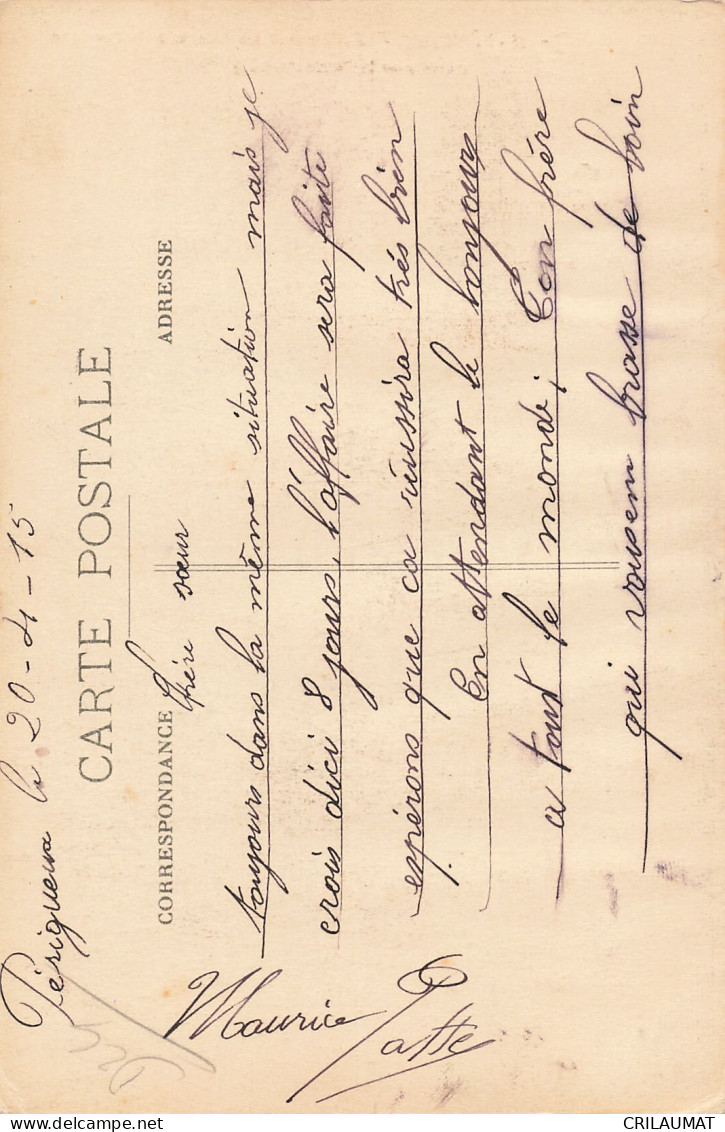 Périgueux le 20-4-15
CARTE POSTALE
CORRESPONDANCE
ADRESSE
Chère sœur
toujours dans la même situation mais je
crois dici 8 jours, l'affaire sera faite
espérons que ca réussira très bien
En attendant le bonjours
a tout le monde; Ton frère
qui vousem brasse de loin
Maurice
CRILAUMAT